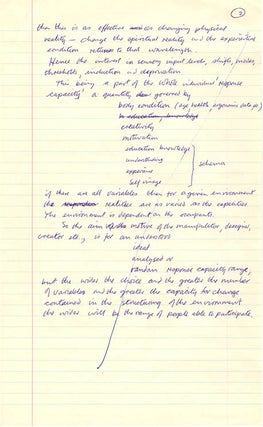 3
then this is as effective as in changing physical
reality – change the spiritual reality and the experiential
condition returns to that wavelength.
Hence the interest in sensory input levels, shifts, biases,
thresholds, induction and deprivation.
This being a part of the whole individual response
capacity, a quantity governed by
body condition (age health organic data pt)
creativity
motivation
education knowledge
understanding
experience
self image
schema
if these are all variables then for a given environment
the realities are as varied as the capacities.
The environment is dependent on the occupants.
So the aim the motive of the manipulator, designer,
creator etc., is for an understood
ideal
analysed or
random response capacity range,
but the wider the choice and the greater the number
of variables and the greater the capacity for change
contained in the structuring of the environment
the wider will be the range of people able to participate.